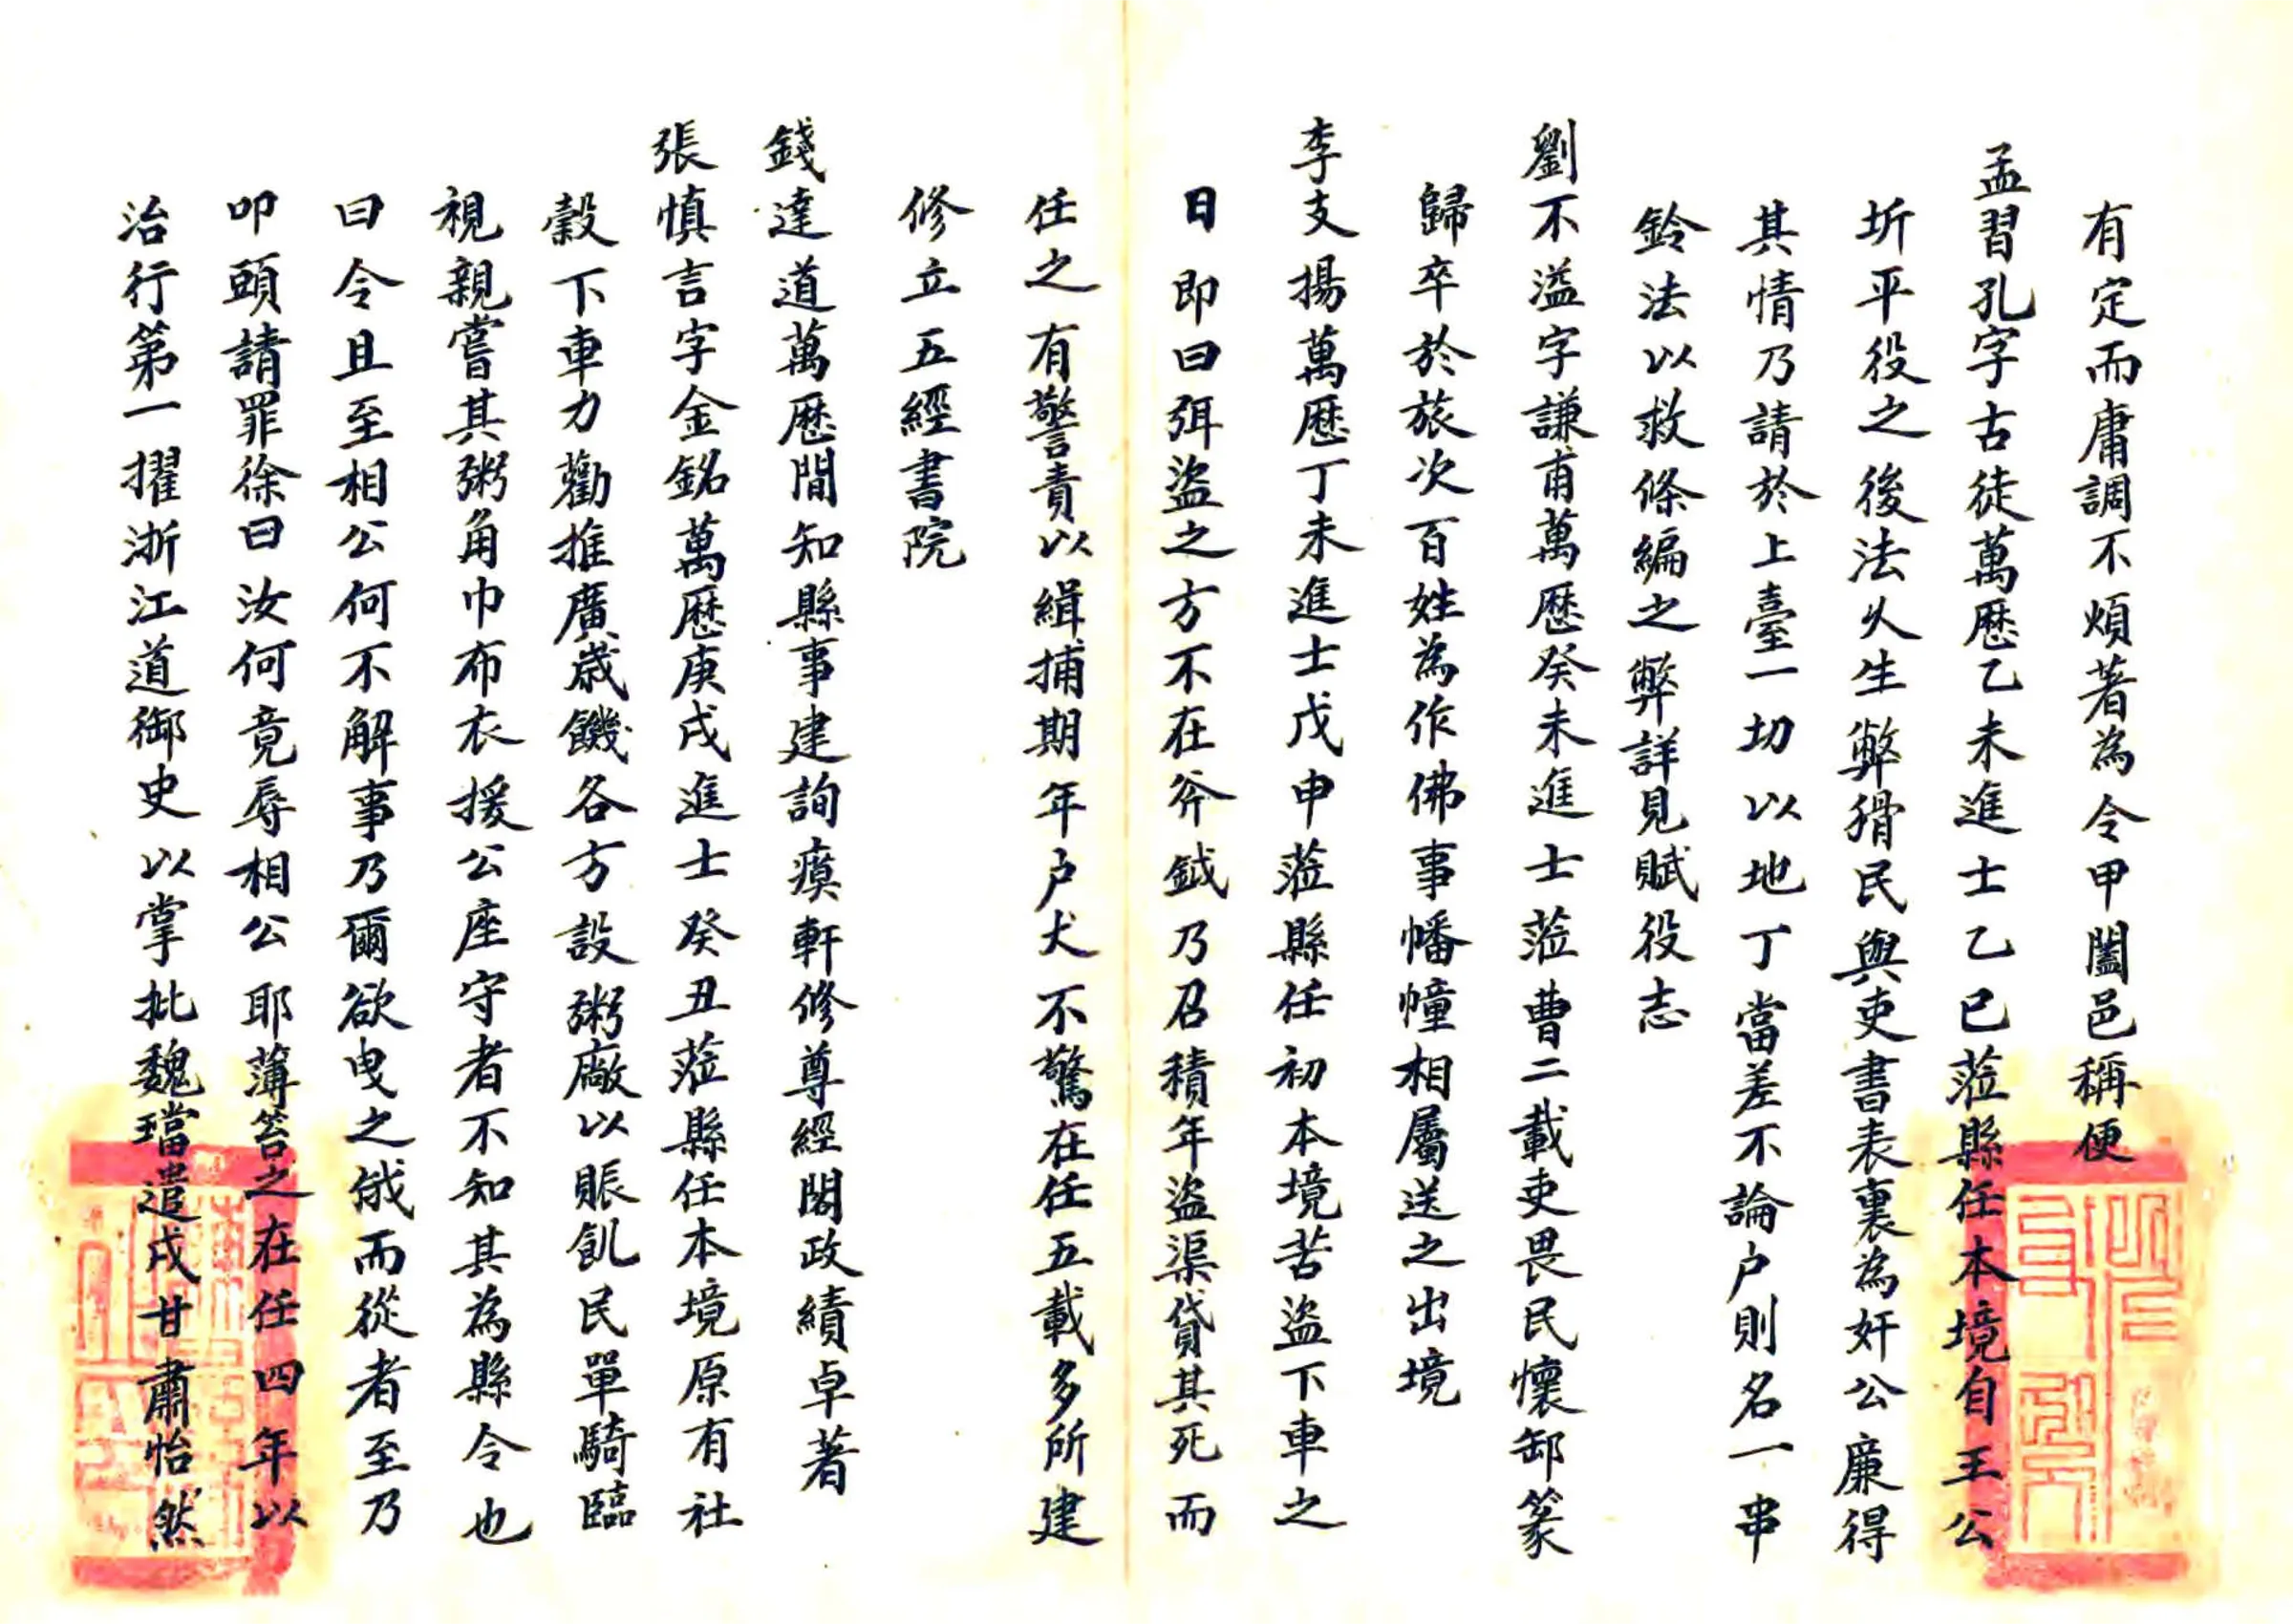 有定而庸調不煩著為令甲闔邑稱便
孟習孔字古徒萬歷乙未進士乙巳蒞縣任本境自王公
圻平役之後法久生弊猾民與吏書表裏為奸公廉得
其情乃請於上臺一切以地丁當差不論户則名一串
鈴法以救條編之弊詳見賦役志
劉不溢字謙甫萬歷癸未進士蒞曹二載吏畏民懷卸篆
歸卒於旅次百姓為作佛事幡幢相屬送之出境
李支揚萬歷丁未進士戊申蒞縣任初本境苦盜下車之
日即曰弭盜之方不在斧鉞乃召積年盜渠貸其死而
任之有警責以緝捕期年户犬不驚在任五載多所建
修立五經書院
錢達道萬歷間知縣事建詢瘼軒修尊經閣政績卓著
張慎言字金銘萬歷庚戌進士癸丑蒞縣任本境原有社
穀下車力勸推廣歲饑各方設粥廠以賑飢民單騎臨
視親嘗其粥角巾布衣援公座守者不知其為縣令也
曰令且至相公何不解事乃爾欲曳之俄而從者至乃
叩頭請罪徐曰汝何竟辱相公耶薄笞之在任四年以
治行第一擢浙江道御史以掌批魏璫遣戍甘肅怡然